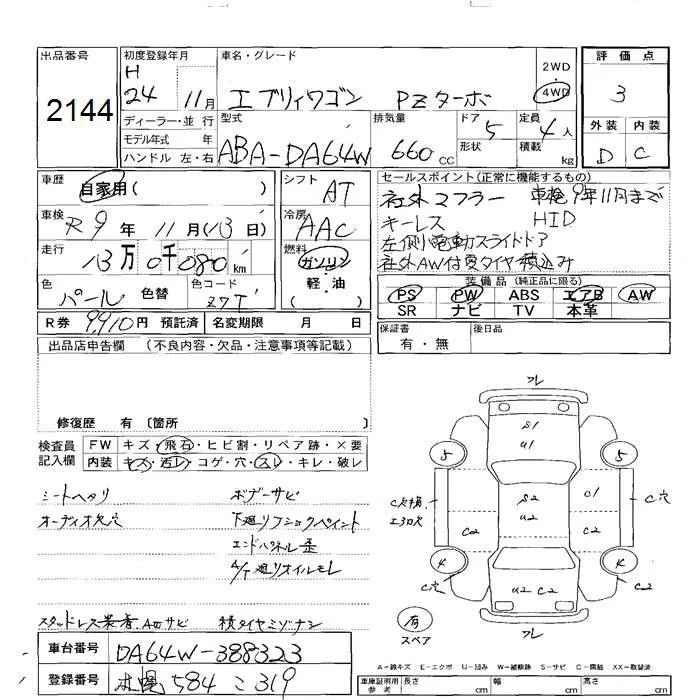 出品番号
2144
初度登録年月
H
24 11月
車名・グレード
エブリィワゴン PZターボ
2WD
4WD
評価点
3
外装 内装
D C
ディーラー・並行
モデル年式 年
ハンドル 左・右
型式
ABA-DA64W
排気量
660cc
ドア 5
形状
定員 4人
積載 kg
車歴
自家用( )
シフト
AT
車検
R9年 11月(13日)
冷房
AAC
走行
13万0千080km
燃料
ガソリン
軽・油
色
パール 色替
色コード
Z7T
R券 9,910円 預託済
名変期限 月 日
セールスポイント(正常に機能するもの)
社外マフラー 車検9年11月まで
キーレス HID
左側電動スライドドア
社外AW付夏タイヤ積込み
装備品(純正品に限る)
PS PW ABS エアB AW
SR ナビ TV 本革
保証書
有・無
後日品
出品店申告欄 (不良内容・欠品・注意事項等記載)
修復歴 有 〔箇所 〕
検査員
記入欄
FW キズ・飛石・ヒビ割・リペア跡・×要
内装 キズ・汚レ・コゲ・穴・スレ・キレ・破レ
シートヘタリ ボデーサビ
オーディオ欠穴 下廻リフショクペイント
エンドパネル歪
A/T廻リオイルモレ
スタッドレス装着 AWサビ 積タイヤミゾナシ
車台番号 DA64W-388323
登録番号 札幌 584 こ 319
フレ
S1
U1
5 5
C欠損
エ3口欠
S2
U2
C1
C穴
C2 C2
4 4
C穴
U2 C2
C2
有
スペア
フレ
A-線キズ E-エクボ U-凹み W-補修跡 S-サビ C-腐蝕 XX-取替済
車庫証明用
参考
長さ cm 幅 cm 高さ cm